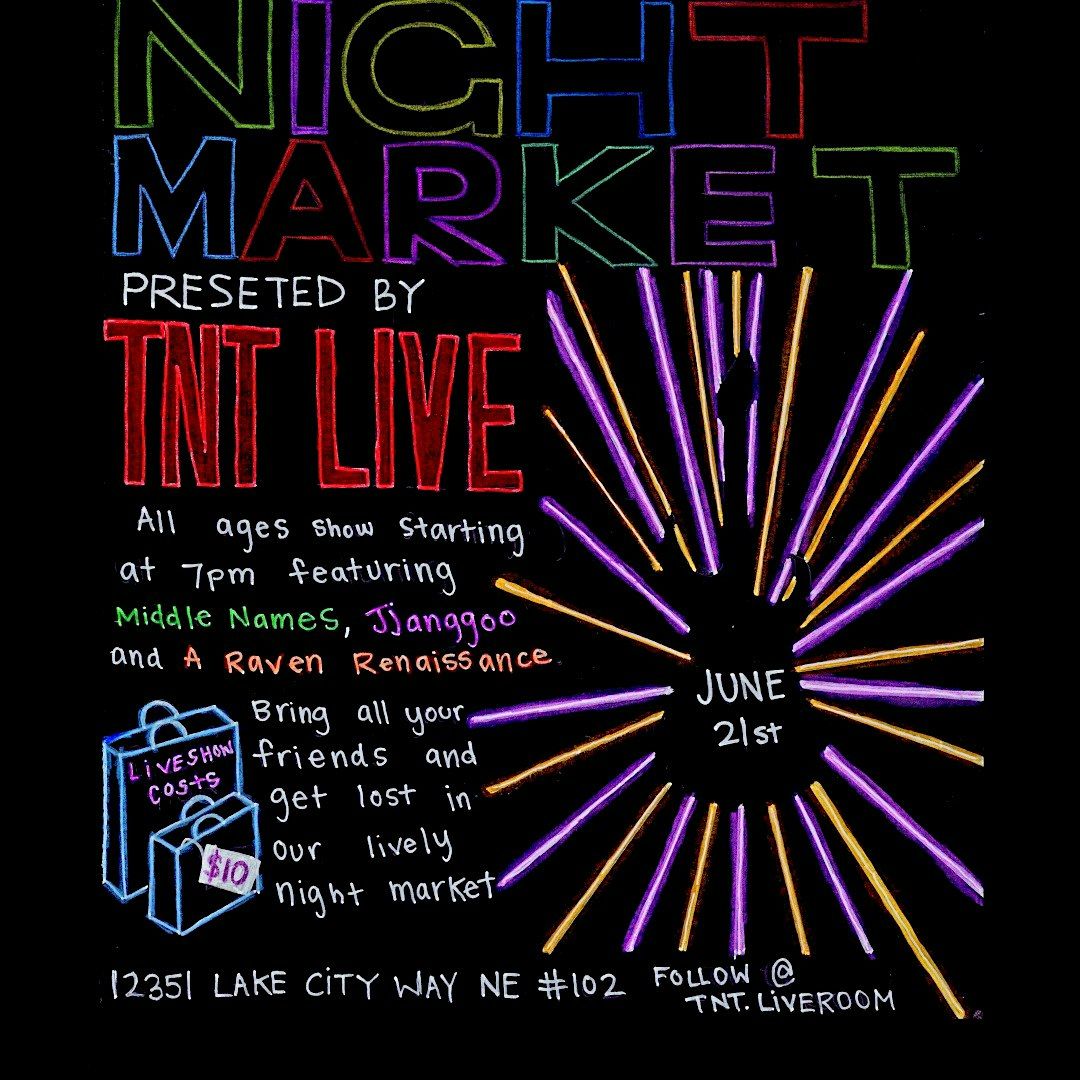 NIGHT
MARKET
PRESETED BY
TNT LIVE
All ages show starting
at 7pm featuring
Middle Names, Jjanggoo
and A Raven Renaissance
LiVESHOW
COSTS
$10
Bring all your
friends and
get lost in
our lively
night market
JUNE
21st
12351 LAKE CiTY WAY NE #102
FOLLOW @
TNT.LiVEROOM